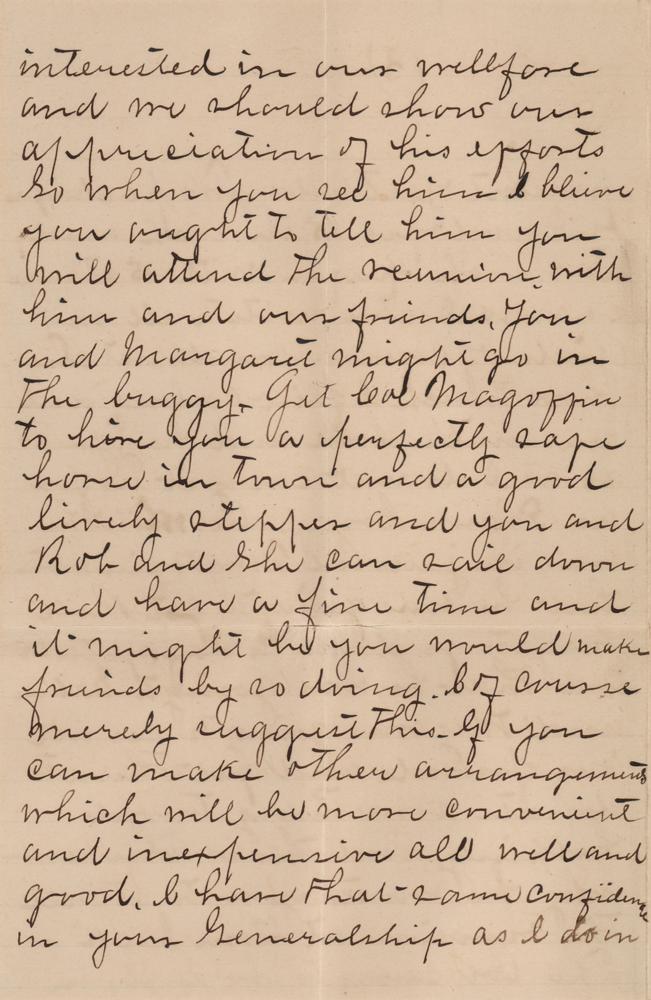 interested in our wellfare
and we should show our
appreciation of his efforts
So when you see him I blieve
you ought to tell him you
will attend the reunion, with
him and our friends. You
and Margaret might go in
the buggy. Get Col Magoffin
to hire you a perfectly safe
horse in town and a good
lively stepper and you and
Rob and She can sail down
and have a fine time and
it might be you would make
friends by so doing. I of course
merely suggest this. If you
can make other arrangements
which will be more convenient
and inexpensive all well and
good. I have that same confidence
in your Generalship as I do in